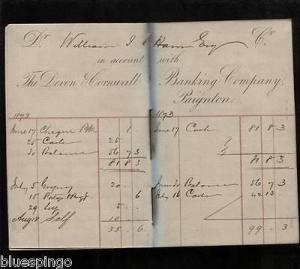 Dr William J. Ham Esq Cr
in account with
The Devon & Cornwall Banking Company,
Paignton.
1893 1893
June 17 Cheque Bk 1 June 17 Cash 81 8 3
25 Cash 25
30 Balance 56 7 3
81 8 3 81 8 3
July 5 20 June 30 Balance 56 7 3
15 6 July 16 Cash 42 13
29
Aug Self 10
35 6 99 3
bluespingo